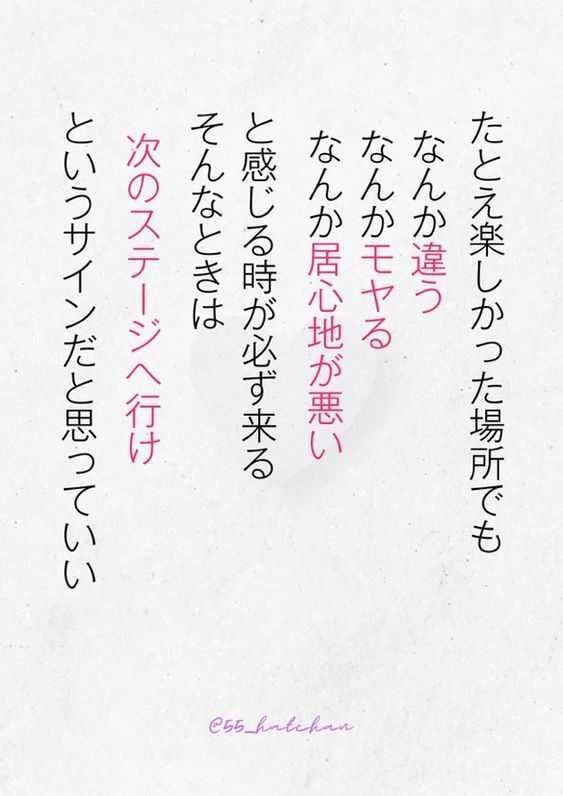 たとえ楽しかった場所でも
なんか違う
なんかモヤる
なんか居心地が悪い
と感じる時が必ず来る
そんなときは
次のステージへ行け
というサインだと思っていい
@55_hatchan